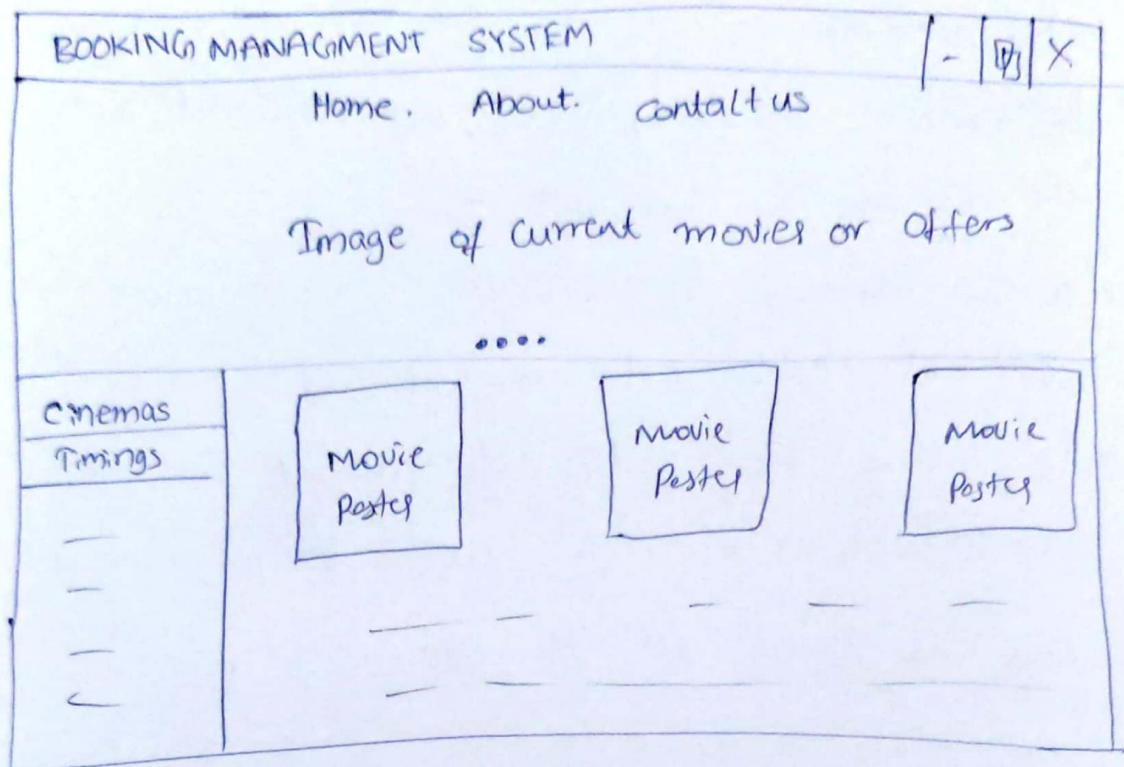 BOOKING MANAGMENT SYSTEM - X
Home. About. contalt us
Image of current movies or offers
....
Cinemas
Timings
Movie
Poster
Movie
Poster
Movie
Poster